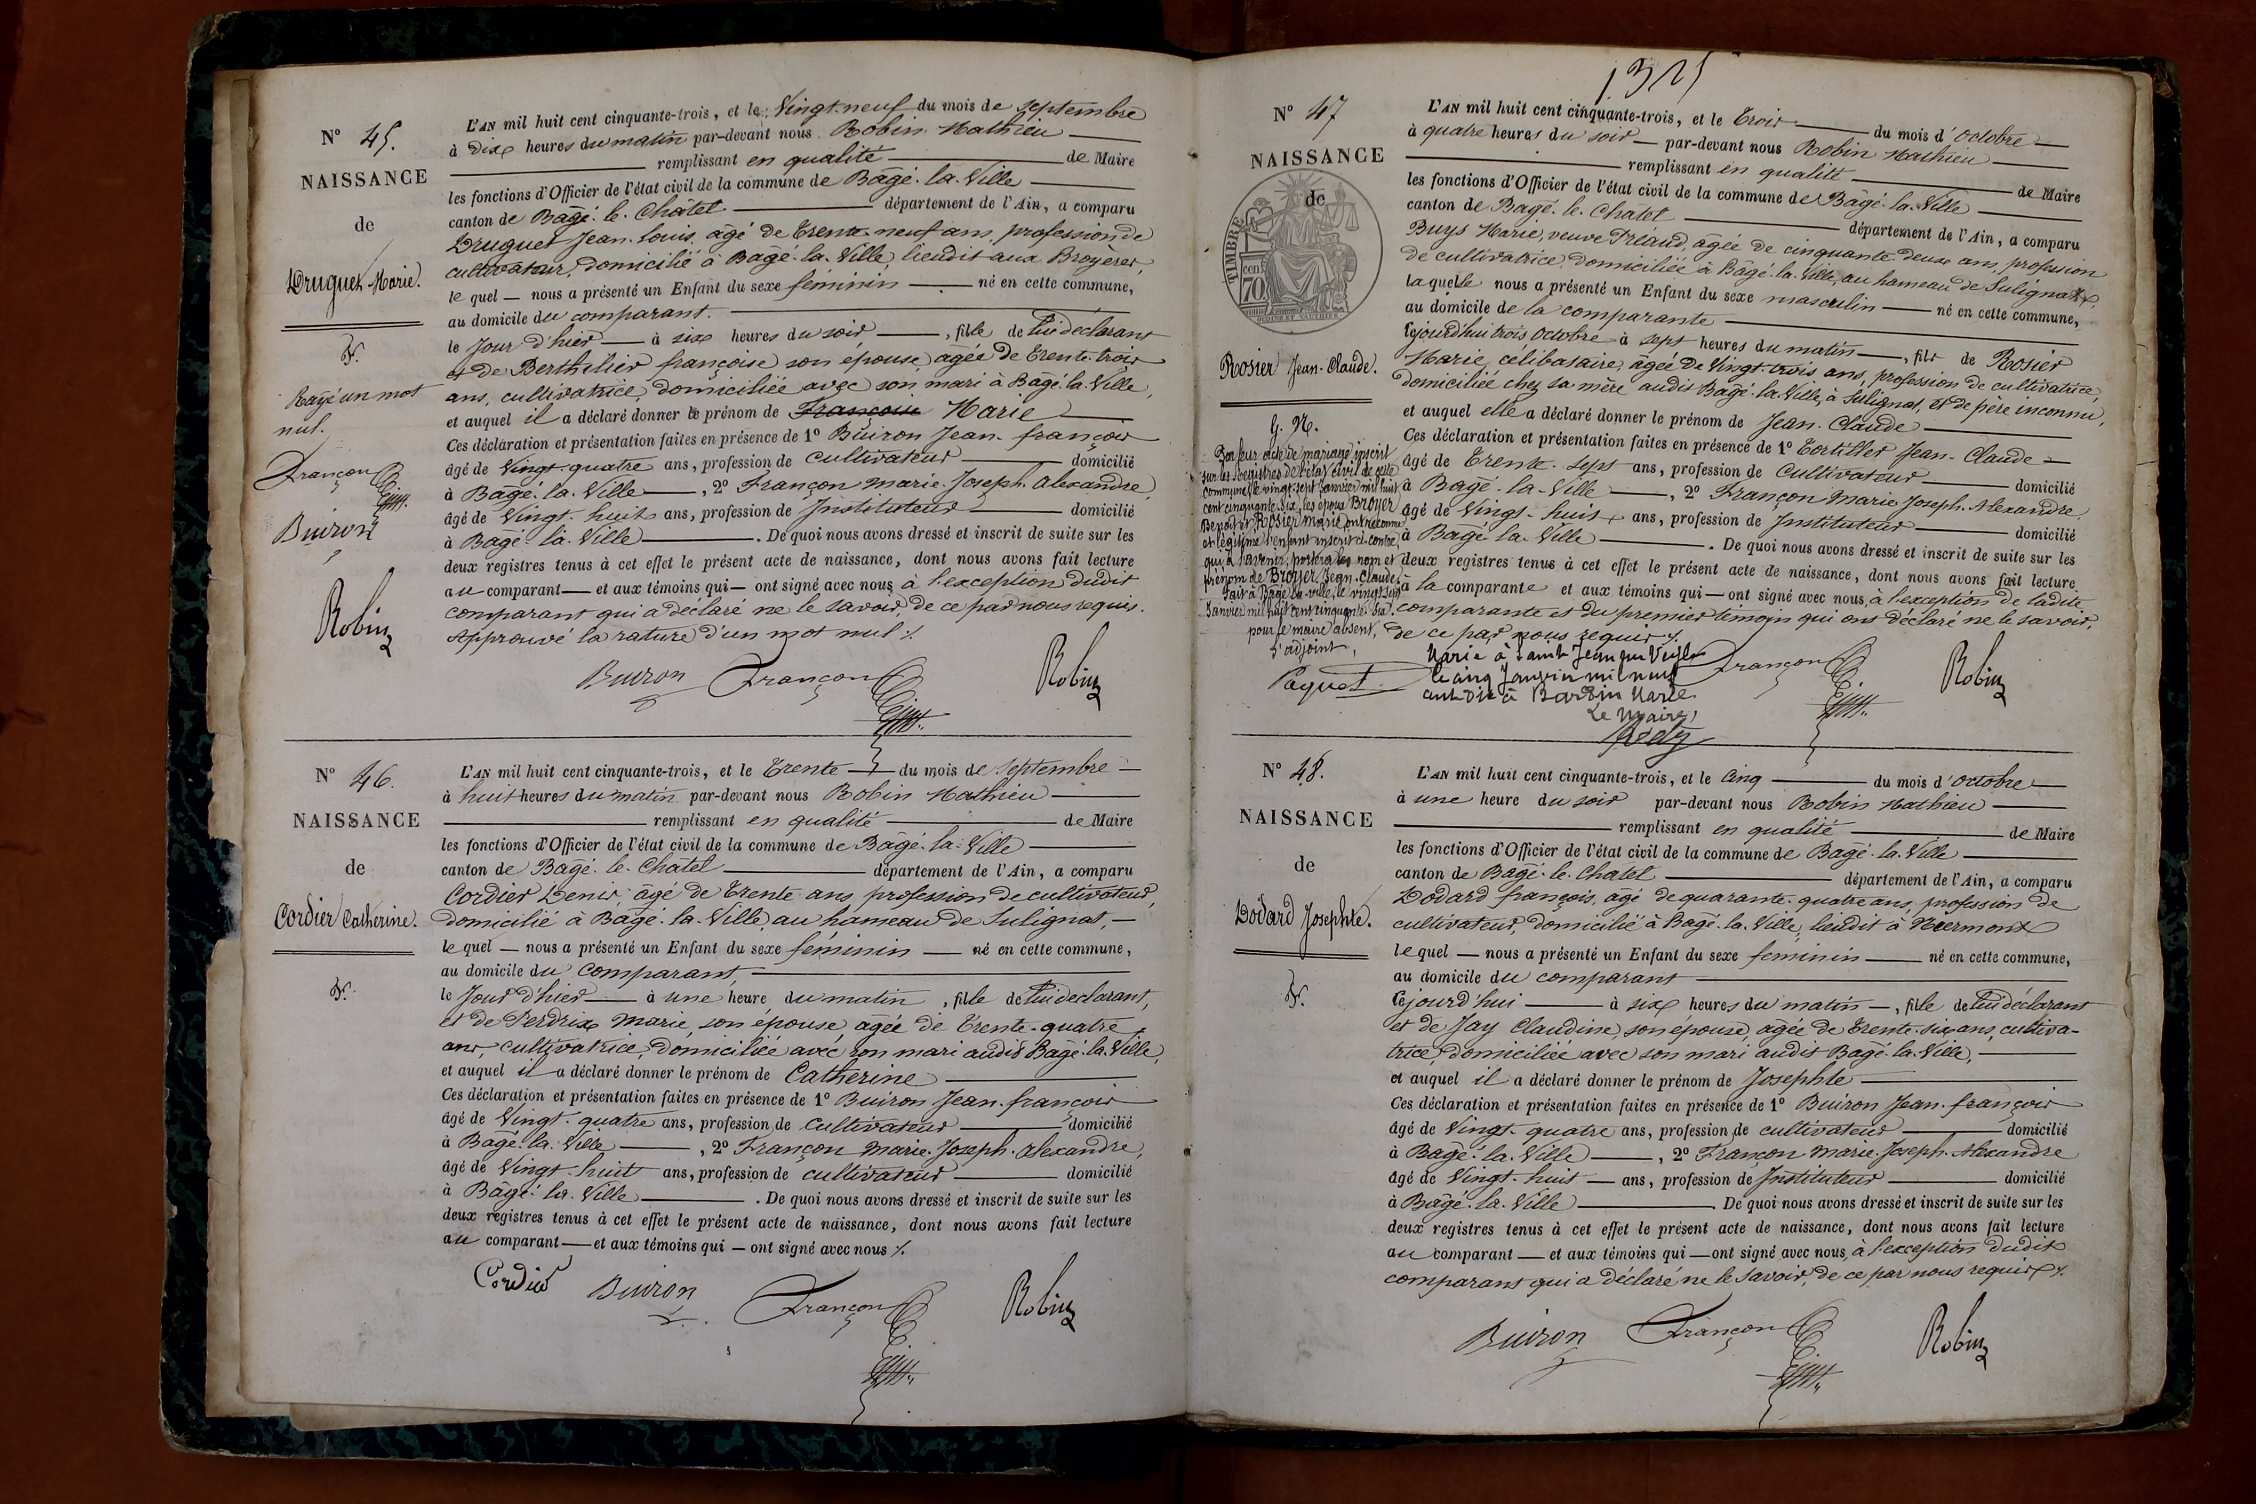 N° 45.
NAISSANCE
de
Druguet Marie.
Rayé un mot
nul.
Françon
Buiron
Robin
L'AN mil huit cent cinquante-trois, et le Vingt-neuf du mois de Septembre
à dix heures du matin par-devant nous Robin Mathieu
remplissant en qualité de Maire
les fonctions d'Officier de l'état civil de la commune de Bâgé-la-Ville
canton de Bâgé-le-Châtel département de l'Ain, a comparu
Druguet Jean-Louis, âgé de trente-neuf ans, profession de
cultivateur, domicilié à Bâgé-la-Ville, lieudit aux Broyères,
le quel nous a présenté un Enfant du sexe féminin né en cette commune,
au domicile du comparant.
le Jour d'hier à six heures du soir, fille de lui déclarant
et de Berthelier françoise son épouse, âgée de trente-trois
ans, cultivatrice, domiciliée avec son mari à Bâgé-la-Ville,
et auquel il a déclaré donner le prénom de Françoise Marie
Ces déclaration et présentation faites en présence de 1° Buiron Jean-françois
âgé de Vingt-quatre ans, profession de cultivateur domicilié
à Bâgé-la-Ville, 2° Françon Marie-Joseph-Alexandre,
âgé de Vingt-huit ans, profession de Instituteur domicilié
à Bâgé-la-Ville. De quoi nous avons dressé et inscrit de suite sur les
deux registres tenus à cet effet le présent acte de naissance, dont nous avons fait lecture
au comparant et aux témoins qui ont signé avec nous, à l'exception dudit
comparant qui a déclaré ne le savoir, de ce par nous requis.
Approuvé la rature d'un mot nul ./.
Buiron Françon Robin
N° 46.
NAISSANCE
de
Cordier Catherine.
L'AN mil huit cent cinquante-trois, et le Trente du mois de Septembre
à huit heures du matin par-devant nous Robin Mathieu
remplissant en qualité de Maire
les fonctions d'Officier de l'état civil de la commune de Bâgé-la-Ville
canton de Bâgé-le-Châtel département de l'Ain, a comparu
Cordier Denis, âgé de trente ans, profession de cultivateur,
domicilié à Bâgé-la-Ville, au hameau de Sulignat,
le quel nous a présenté un Enfant du sexe féminin né en cette commune,
au domicile du comparant,
le Jour d'hier à une heure du matin, fille de lui déclarant,
et de Perdrix Marie, son épouse, âgée de trente-quatre
ans, cultivatrice, domiciliée avec son mari audit Bâgé-la-Ville,
et auquel il a déclaré donner le prénom de Catherine
Ces déclaration et présentation faites en présence de 1° Buiron Jean-françois
âgé de Vingt-quatre ans, profession de cultivateur domicilié
à Bâgé-la-Ville, 2° Françon Marie-Joseph-Alexandre,
âgé de Vingt-huit ans, profession de cultivateur domicilié
à Bâgé-la-Ville. De quoi nous avons dressé et inscrit de suite sur les
deux registres tenus à cet effet le présent acte de naissance, dont nous avons fait lecture
au comparant et aux témoins qui ont signé avec nous ./.
Cordier Buiron Françon Robin
N° 47
NAISSANCE
de
TIMBRE
cent
70
Rosier Jean-Claude.
G. N.
Par leur acte de mariage inscrit
sur les Registres de l'état civil de cette
commune, le vingt-sept Janvier mil huit
cent cinquante-six, les époux Broyer
Benoît et Rosier Marie, ont reconnu
et légitimé l'enfant inscrit ci-contre,
qui à l'avenir, portera les nom et
prénom de Broyer Jean-Claude,
fait à Bâgé-la-ville, le vingt-sept
Janvier mil huit cent cinquante-six.
pour le maire absent,
L'adjoint,
Paquet
L'AN mil huit cent cinquante-trois, et le trois du mois d'Octobre
à quatre heures du soir par-devant nous Robin Mathieu
remplissant en qualité de Maire
les fonctions d'Officier de l'état civil de la commune de Bâgé-la-Ville
canton de Bâgé-le-Châtel département de l'Ain, a comparu
Buys Marie, veuve Préaud, âgée de cinquante-deux ans, profession
de cultivatrice, domiciliée à Bâgé-la-Ville, au hameau de Sulignat,
la quelle nous a présenté un Enfant du sexe masculin né en cette commune,
au domicile de la comparante
cejourd'hui trois Octobre à sept heures du matin, fils de Rosier
Marie, célibataire, âgée de Vingt-trois ans, profession de cultivatrice,
domiciliée chez sa mère audit Bâgé-la-Ville, à Sulignat, et de père inconnu,
et auquel elle a déclaré donner le prénom de Jean-Claude
Ces déclaration et présentation faites en présence de 1° Tortillet Jean-Claude
âgé de Trente-sept ans, profession de Cultivateur domicilié
à Bâgé-la-Ville, 2° Françon Marie-Joseph-Alexandre,
âgé de Vingt-huit ans, profession de Instituteur domicilié
à Bâgé-la-Ville. De quoi nous avons dressé et inscrit de suite sur les
deux registres tenus à cet effet le présent acte de naissance, dont nous avons fait lecture
à la comparante et aux témoins qui ont signé avec nous, à l'exception de ladite
comparante et du premier témoin qui ont déclaré ne le savoir,
de ce par nous requis ./.
Marié à Saint Jean sur Veyle
le cinq Janvier mil neuf
cent dix à Bardin Marie
Le Maire,
Françon Robin
N° 48.
NAISSANCE
de
Dodard Josephte.
L'AN mil huit cent cinquante-trois, et le Cinq du mois d'Octobre
à une heure du soir par-devant nous Robin Mathieu
remplissant en qualité de Maire
les fonctions d'Officier de l'état civil de la commune de Bâgé-la-Ville
canton de Bâgé-le-Châtel département de l'Ain, a comparu
Dodard françois, âgé de quarante-quatre ans, profession de
cultivateur, domicilié à Bâgé-la-Ville, lieudit à Niermont
le quel nous a présenté un Enfant du sexe féminin né en cette commune,
au domicile du comparant
cejourd'hui à six heures du matin, fille de lui déclarant
et de Jay Claudine, son épouse, âgée de trente-six ans, cultiva-
trice, domiciliée avec son mari audit Bâgé-la-Ville,
et auquel il a déclaré donner le prénom de Josephte
Ces déclaration et présentation faites en présence de 1° Buiron Jean-françois
âgé de Vingt-quatre ans, profession de cultivateur domicilié
à Bâgé-la-Ville, 2° Françon Marie-Joseph-Alexandre
âgé de Vingt-huit ans, profession de Instituteur domicilié
à Bâgé-la-Ville. De quoi nous avons dressé et inscrit de suite sur les
deux registres tenus à cet effet le présent acte de naissance, dont nous avons fait lecture
au comparant et aux témoins qui ont signé avec nous, à l'exception dudit
comparant qui a déclaré ne le savoir, de ce par nous requis ./.
Buiron Françon Robin